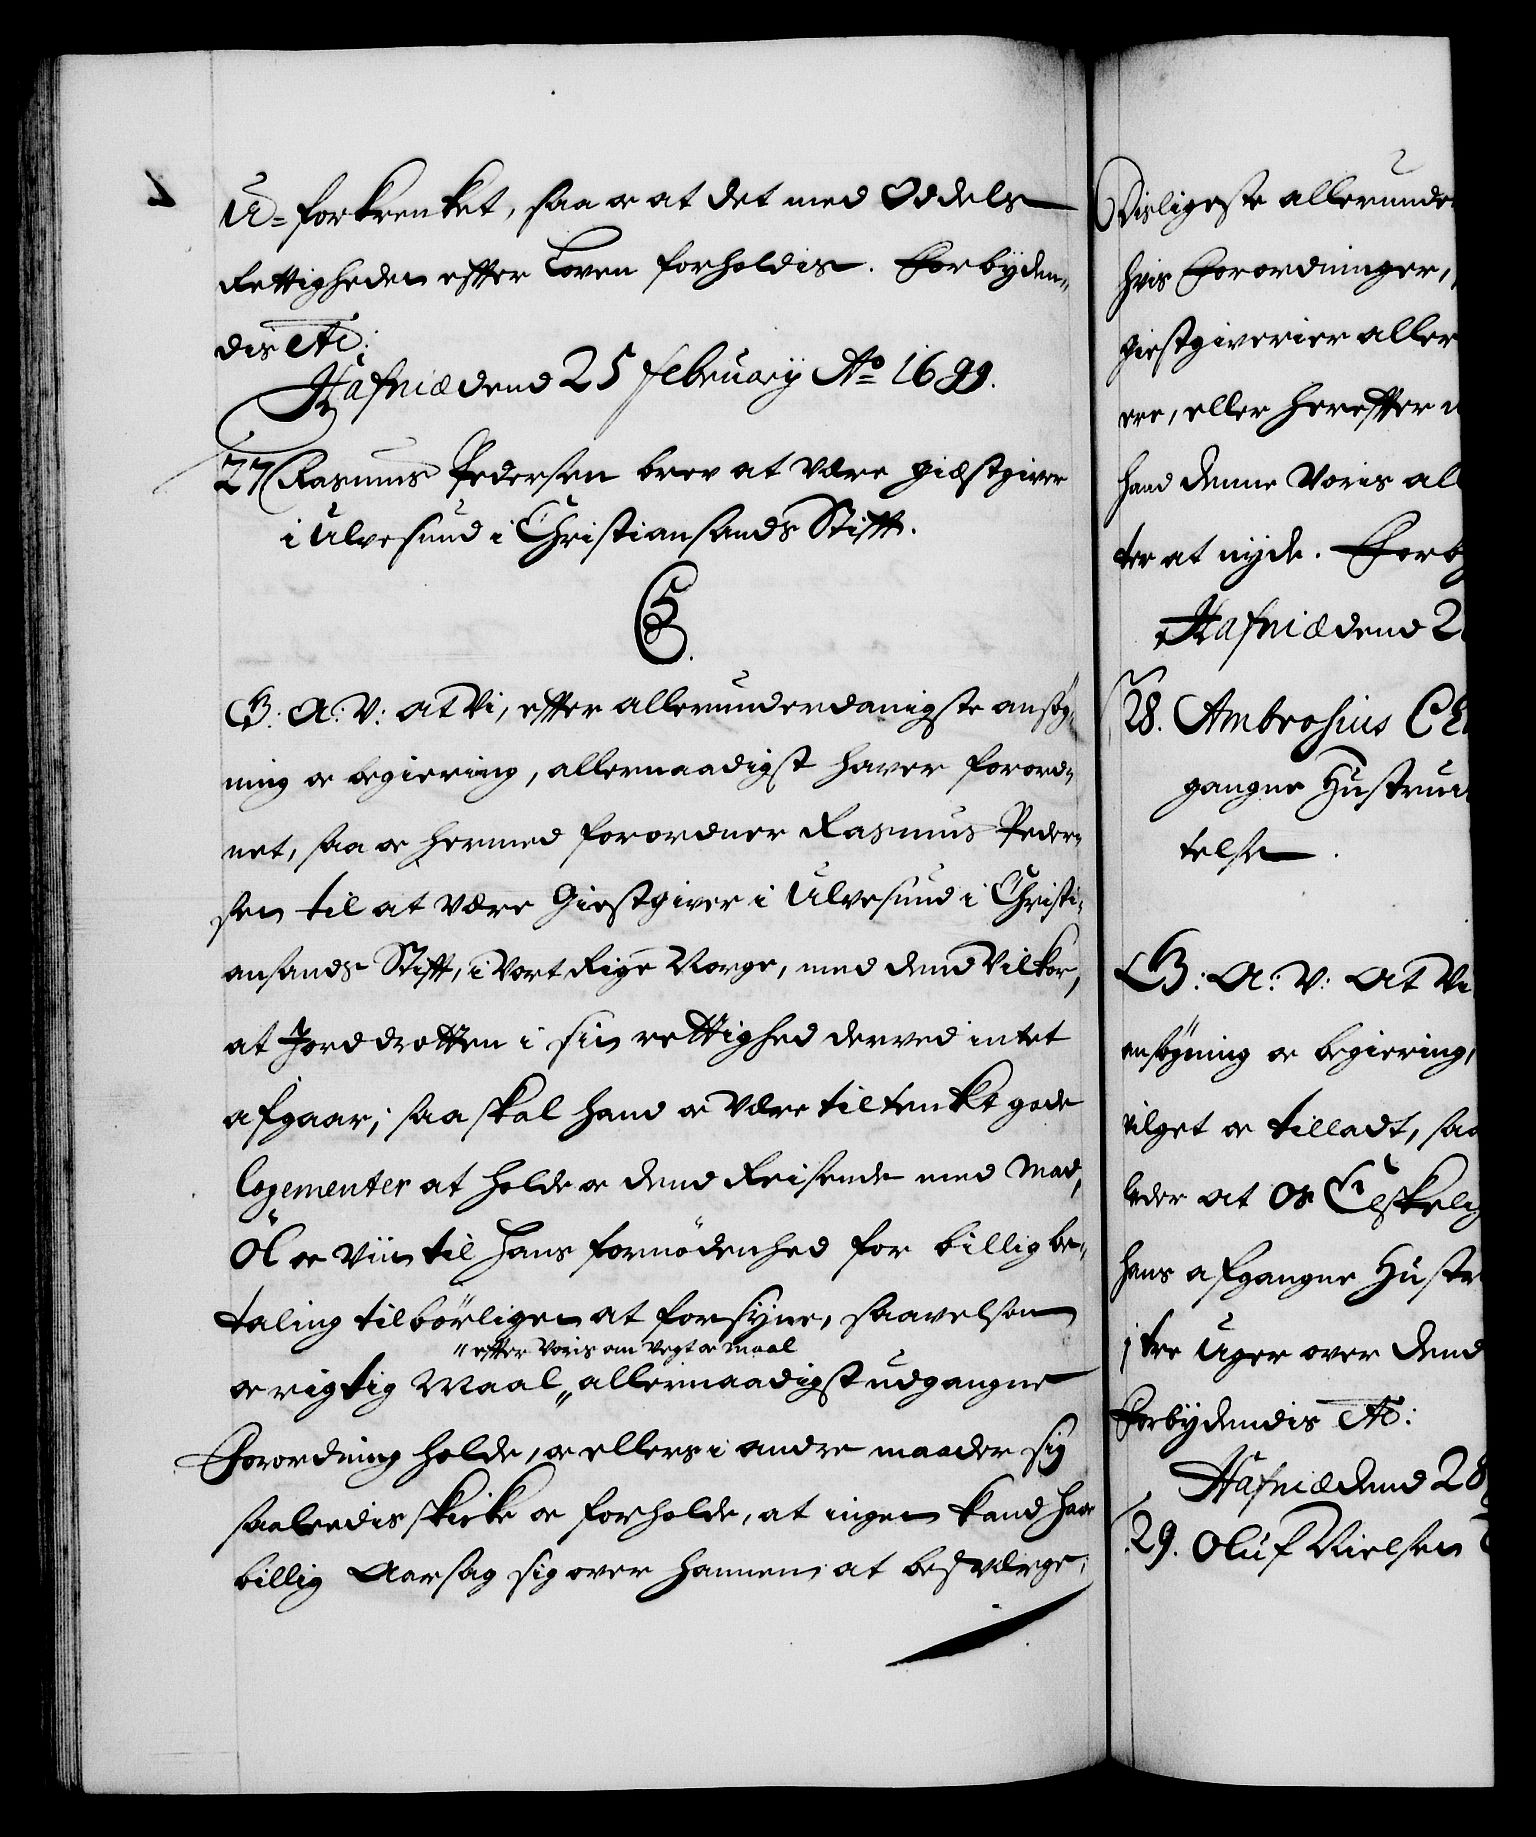 U-forkrenket, saa oc at det med Oddels
Rettigheden efter Loven forholdis. Forbyden-
dis etc:
Hafniæ dend 25 february Ao 1699.
27 Rasmus Pedersen brev at være giæstgiver
i Ulvesund i Christiansands Stift.
C5.
G: A: V: At Vi, efter allerunderdanigste ansög-
ning oc begiering, allernaadigst haver forord-
net, saa oc hermed forordner Rasmus Peder-
sen til at være Giestgiver i Ulvesund i Christi-
ansands Stift, i Vort Rige Norge, med dend Vilkor,
at Jorddrotten i sin rettighed derved intet
afgaar; saa skal hand oc være tiltenkt gode
logementer at holde oc dend Reisende med Mad,
Öl oc Viin til hans fornödenhed for billig be-
taling tilbörligen at forsyne, saavelsom
" efter Voris om Vegt oc Maal
oc rigtig Maal " allernaadigst udgangne
Forordning holde, oc ellers i andre maader sig
saaledis skicke oc forholde, at ingen kand have
billig Aarsag sig over hannem at besværge.
Disligeste allerunde
hvis Forordninger,
giestgiverier aller
ere, eller herefter
hand denne Voris all
ter at nyde. Forby
Hafniæ dend 2
28. Ambrosius Ch
gangne Hustrue
telse.
G: A: V: At Vi
ansögning oc begiering,
vilget oc tilladt, saa
leder at Os Elskelig
hans afgangne Hustr
i tre Uger over dend
Forbydendis etc:
Hafniæ dend 28
29. Oluf Nielsen